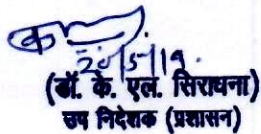 20/5/19.
(डॉ. के. एल. सिराधना)
उप निदेशक (प्रशासन)